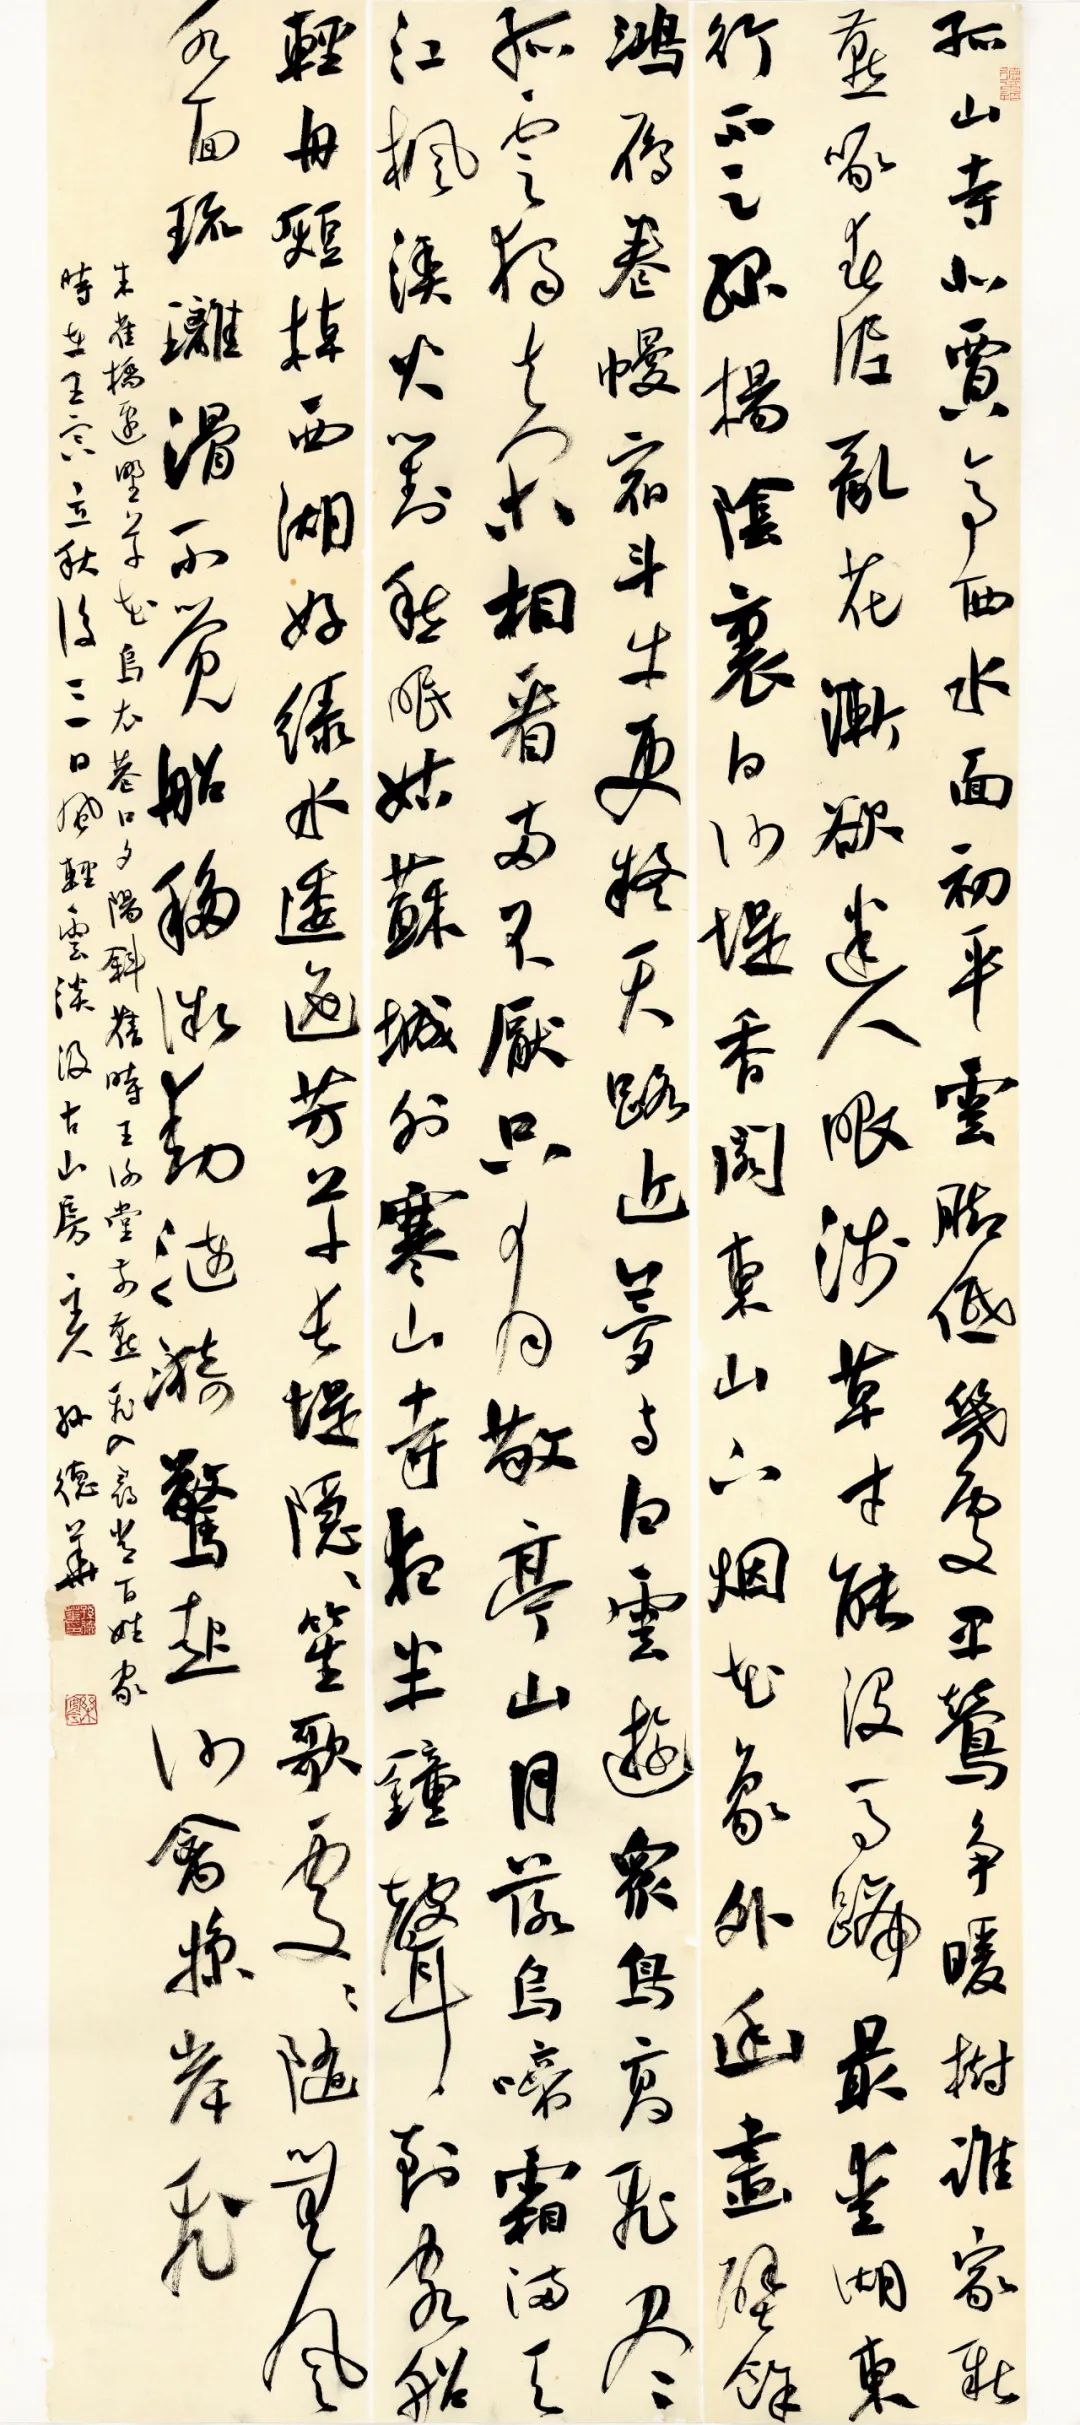 孤山寺北賈亭西水面初平雲腳低幾處早鶯爭暖樹誰家新
燕啄春泥亂花漸欲迷人眼淺草才能沒馬蹄最愛湖東
行不足綠楊陰裏白沙堤香閣東山下烟花象外幽畫壁餘
鴻雁卷幔宿斗牛更疑天路近夢与白雲遊眾鳥高飛盡
孤雲獨去閑相看兩不厭只有敬亭山月落烏啼霜滿天
江楓漁火對愁眠姑蘇城外寒山寺夜半鐘聲到客船
輕舟短棹西湖好綠水逶迤芳草長堤隱、笙歌處、隨無風
水面琉璃滑不覺船移微動漣漪驚起沙禽掠岸飛
朱雀橋邊野草花烏衣巷口夕陽斜舊時王謝堂前燕飛入尋常百姓家
時在壬寅立秋後三日風輕雲淡汲古山房主人孫德華